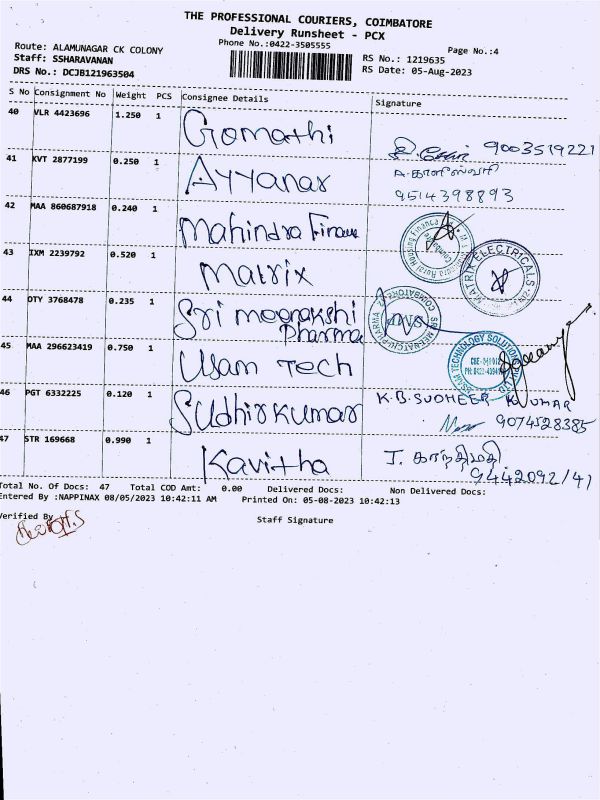 THE PROFESSIONAL COURIERS, COIMBATORE
Delivery Runsheet - PCX
Phone No.:0422-3505555
Page No.:4
Route: ALAMUNAGAR CK COLONY
Staff: SSHARAVANAN
RS No.: 1219635
DRS No.: DCJB121963504
RS Date: 05-Aug-2023
S No Consignment No Weight PCS Consignee Details Signature
40 VLR 4423696 1.250 1 Gomathi 9003519221
41 KVT 2877199 0.250 1 Ayyanar
9514398893
42 MAA 860687918 0.240 1 Mahindra Finance
43 IXM 2239792 0.520 1 Matrix MATRIX ELECTRICALS
44 OTY 3768478 0.235 1 Sri meenakshi
Pharma
45 MAA 296623419 0.750 1 Usam Tech
46 PGT 6332225 0.120 1 Sudhirkumar K.B.SUDHEER KUMAR
9074528385
47 STR 169668 0.990 1 Kavitha J. காந்திமதி
9442092141
Total No. Of Docs: 47 Total COD Amt: 0.00 Delivered Docs: Non Delivered Docs:
Entered By :NAPPINAX 08/05/2023 10:42:11 AM Printed On: 05-08-2023 10:42:13
Verified By
Staff Signature